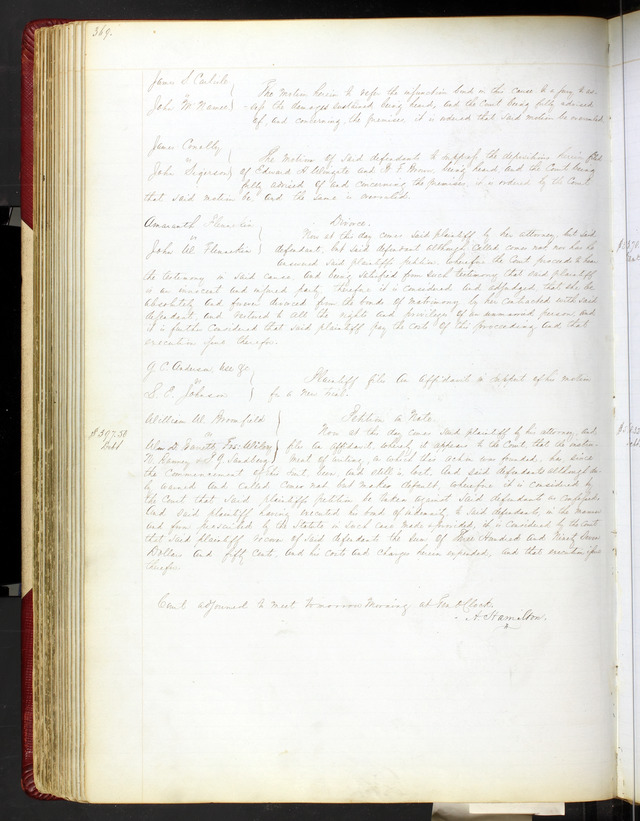 369.
James S. Carlile
vs
John McNamee
The motion herein to refer the injunction bond in this cause to a jury to as-
-sess the damages sustained being heard, and the Court being fully advised
of, and concerning the premises, it is ordered that said motion be overruled.
James Conally
vs
John Sigerson
The motion of said defendants to suppress the depositions herein filed
of Edward H. and H. F. being heard and the Court being
fully advised of and concerning the premises, it is ordered by the Court
that said motion be, and the same is overruled.
vs
John W.
Divorce.
Now at this day comes said plaintiff by her attorney, but said
defendant, but said defendant although called comes not nor has he
answered said plaintiffs petition, wherefore the Court proceeds to hear
the testimony in said cause, and being satisfied from such testimony that said plaintiff
is an innocent and injured party, therefore it is considered and adjudged, that she be
absolutely and forever divorced from the bonds of matrimony by her contracted with said
defendant, and restored to all the rights and privileges of an unmarried person, and
it is further considered that said plaintiff pay the costs of this proceeding and that
execution issue therefor.
G. C. Anderson, use &c
vs
S. P. Johnson
Plaintiff files an affidavit in support of his motion
for a new trial.
William W. Bromfield
vs
Petition on Note.
$397.50
Debt
Now at this day comes said plaintiff by his attorney, and
files an affidavit, which, it appears to the Court, that the instru-
ment of writing, on which this action was founded, has since
the commencement of this suit been, and still is lost. And said defendants although du-
ly warned and called comes not but makes default, wherefore it is considered by
the Court that said plaintiffs petition be taken against said defendants as confessed
And said plaintiff having executed his bond of indemnity to said defendants, in the manner
and form prescribed by the Statute in such case made & provided, it is considered by the Court
that said plaintiff recover of said defendants the sum of Three Hundred and Ninety Seven
Dollars and fifty cents, and his costs and charges herein expended, and that execution issue
therefor.
Court adjourned to meet tomorrow Morning at Ten O'Clock.
A. Hamilton